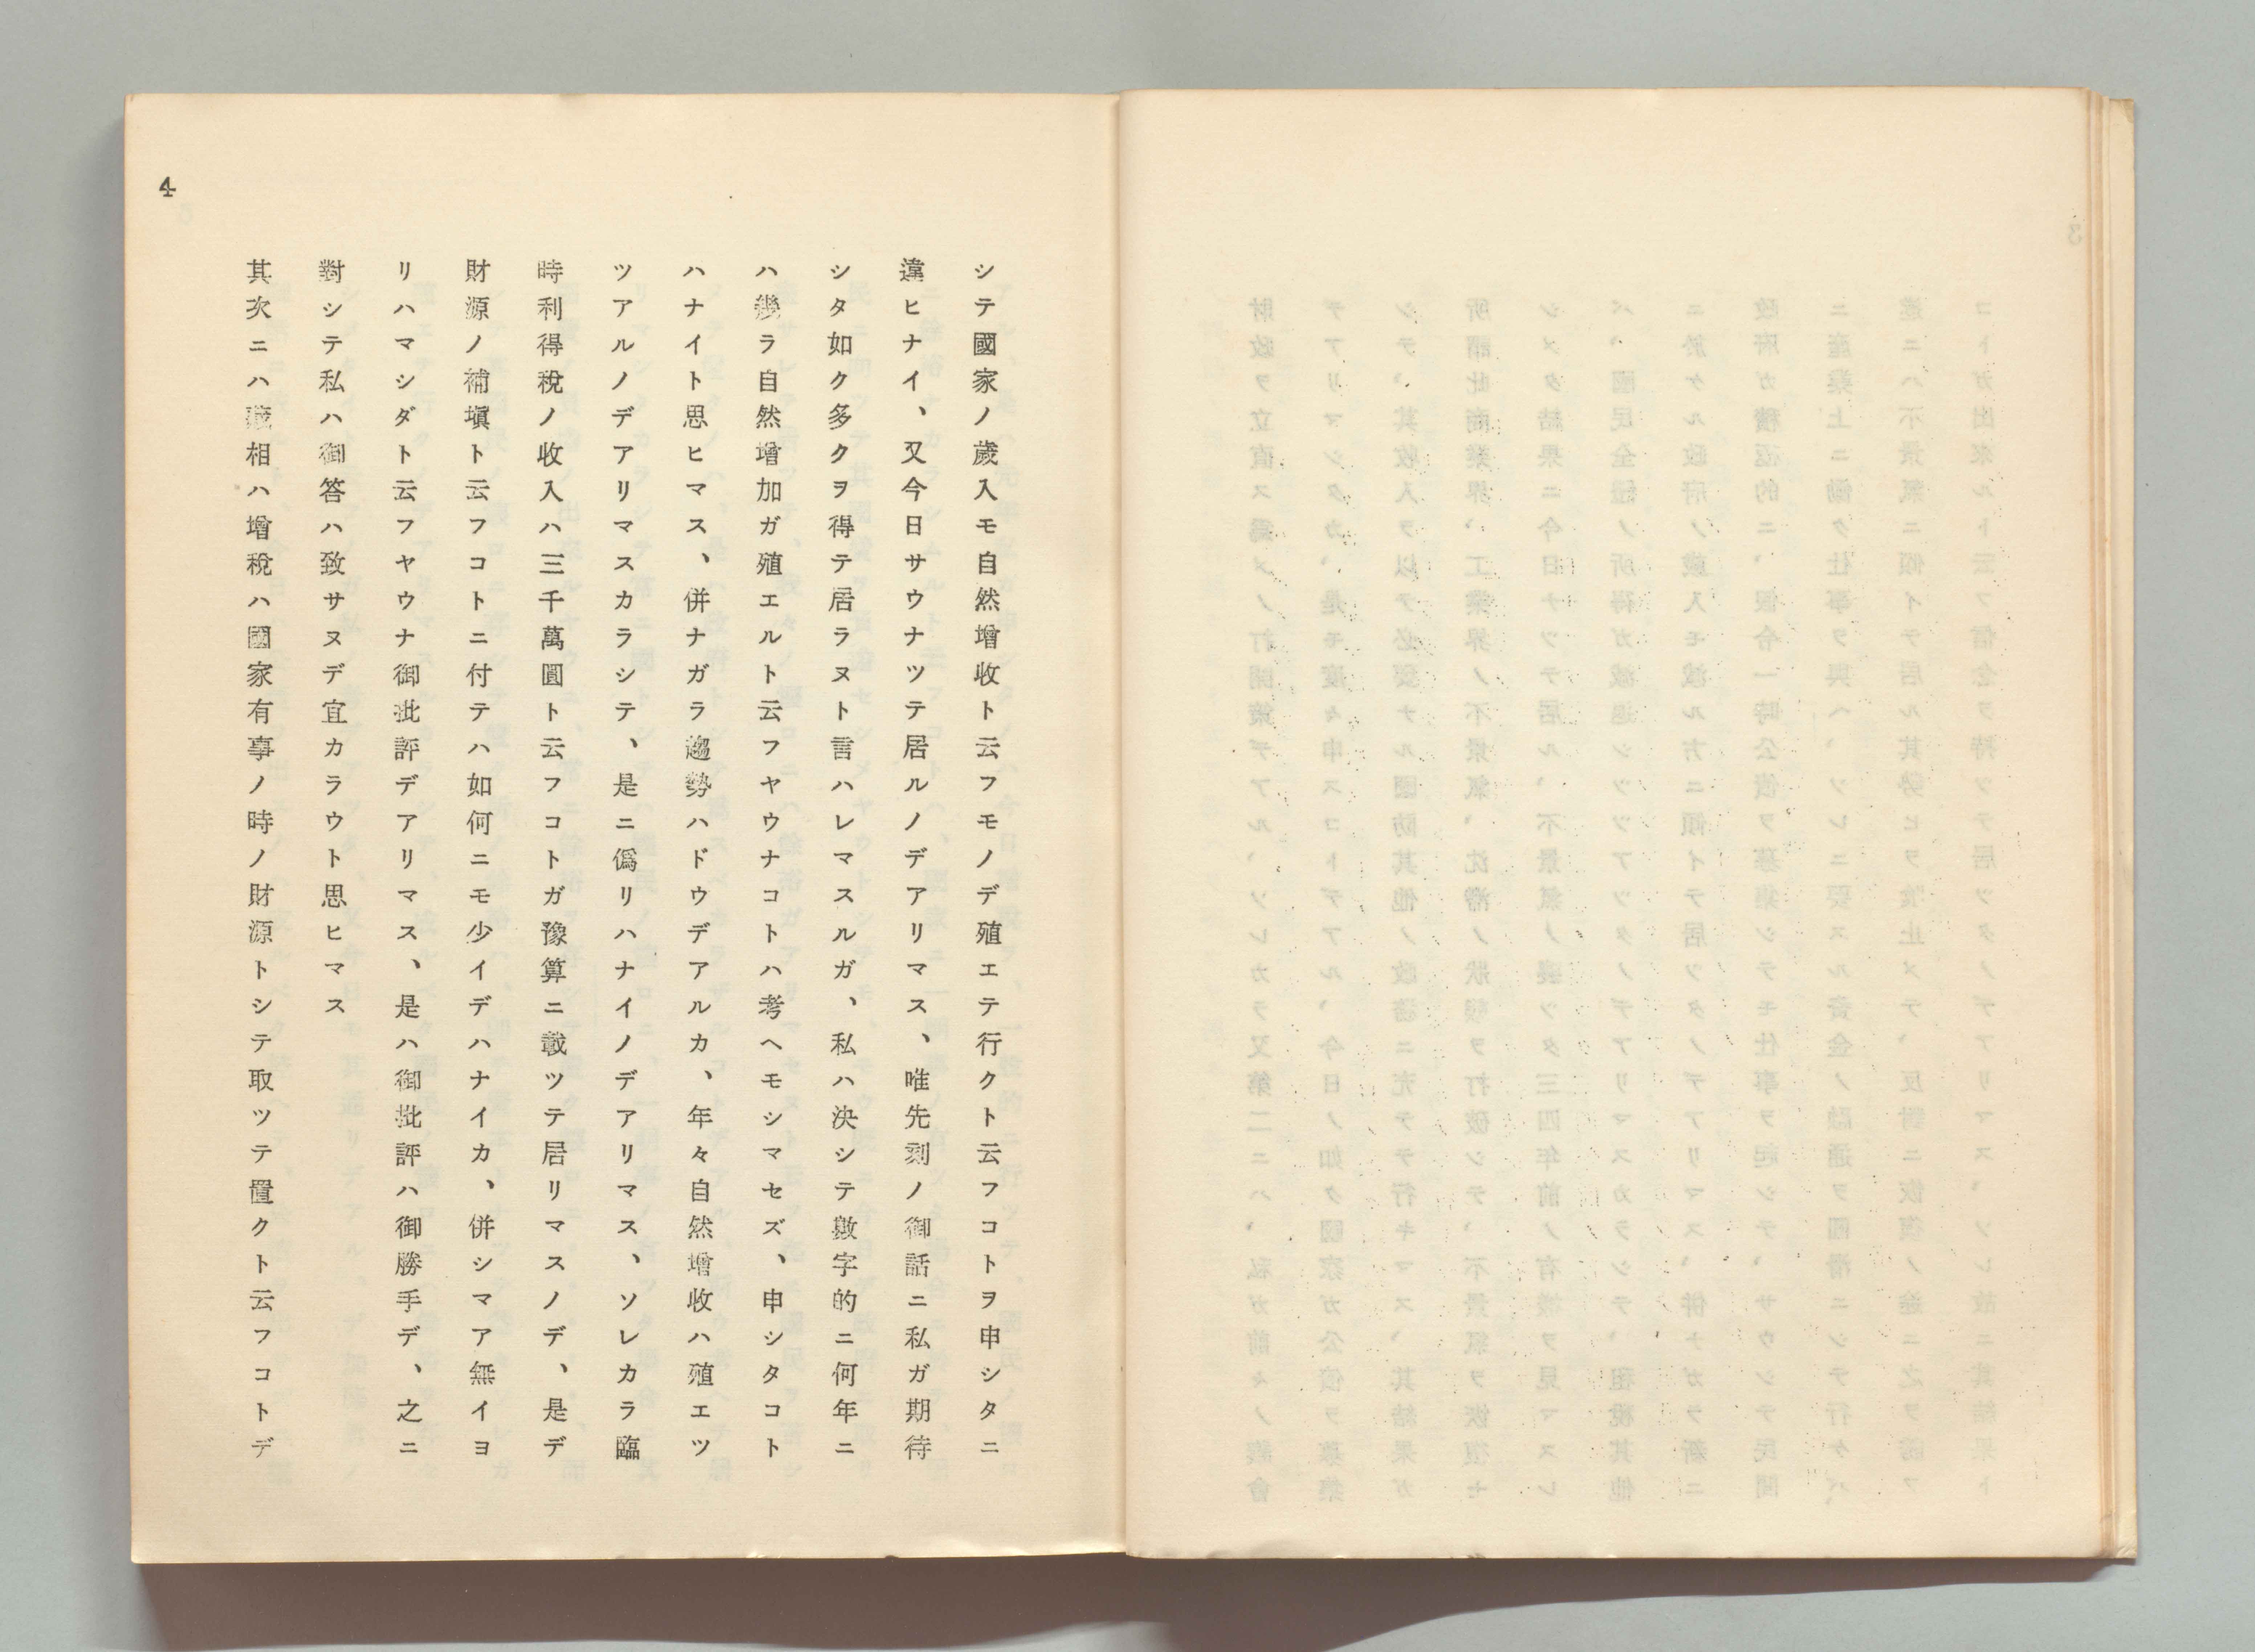 4
シテ國家ノ歲入モ自然增收ト云フモノデ殖エテ行クト云フコトヲ申シタニ
違ヒナイ、又今日サウナツテ居ルノデアリマス、唯先刻ノ御話ニ私ガ期待
シタ如ク多クヲ得テ居ラヌト言ハレマスルガ、私ハ決シテ數字的ニ何年ニ
ハ幾ラ自然增加ガ殖エルト云フヤウナコトハ考ヘモシマセズ、申シタコト
ハナイト思ヒマス、併ナガラ趨勢ハドウデアルカ、年々自然增收ハ殖エツ
ツアルノデアリマスカラシテ、是ニ僞リハナイノデアリマス、ソレカラ臨
時利得稅ノ收入ハ三千萬圓ト云フコトガ豫算ニ載ツテ居リマスノデ、是デ
財源ノ補塡ト云フコトニ付テハ如何ニモ少イデハナイカ、併シマア無イヨ
リハマシダト云フヤウナ御批評デアリマス、是ハ御批評ハ御勝手デ、之ニ
對シテ私ハ御答ハ致サヌデ宜カラウト思ヒマス
其次ニハ藏相ハ增稅ハ國家有事ノ時ノ財源トシテ取ツテ置クト云フコトデ